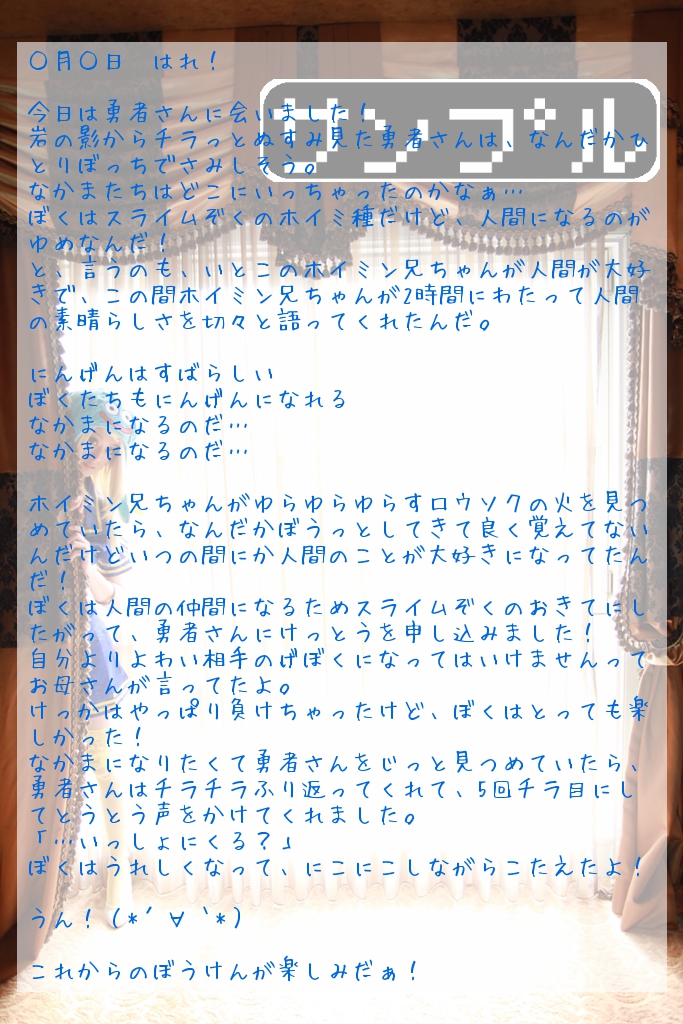 〇月〇日　はれ！
サンプル
今日は勇者さんに会いました！
岩の影からチラっとぬすみ見た勇者さんは、なんだかひ
とりぼっちでさみしそう。
なかまたちはどこにいっちゃったのかなぁ…
ぼくはスライムぞくのホイミ種だけど、人間になるのが
ゆめなんだ！
と、言うのも、いとこのホイミン兄ちゃんが人間が大好
きで、この間ホイミン兄ちゃんが2時間にわたって人間
の素晴らしさを切々と語ってくれたんだ。
にんげんはすばらしい
ぼくたちもにんげんになれる
なかまになるのだ…
なかまになるのだ…
ホイミン兄ちゃんがゆらゆらゆらすロウソクの火を見つ
めていたら、なんだかぼうっとしてきて良く覚えてない
んだけどいつの間にか人間のことが大好きになってたん
だ！
ぼくは人間の仲間になるためスライムぞくのおきてにし
たがって、勇者さんにけっとうを申し込みました！
自分よりよわい相手のげぼくになってはいけませんって
お母さんが言ってたよ。
けっかはやっぱり負けちゃったけど、ぼくはとっても楽
しかった！
なかまになりたくて勇者さんをじっと見つめていたら、
勇者さんはチラチラふり返ってくれて、5回チラ目にし
てとうとう声をかけてくれました。
「…いっしょにくる？」
ぼくはうれしくなって、にこにこしながらこたえたよ！
うん！(*´∀｀*)
これからのぼうけんが楽しみだぁ！